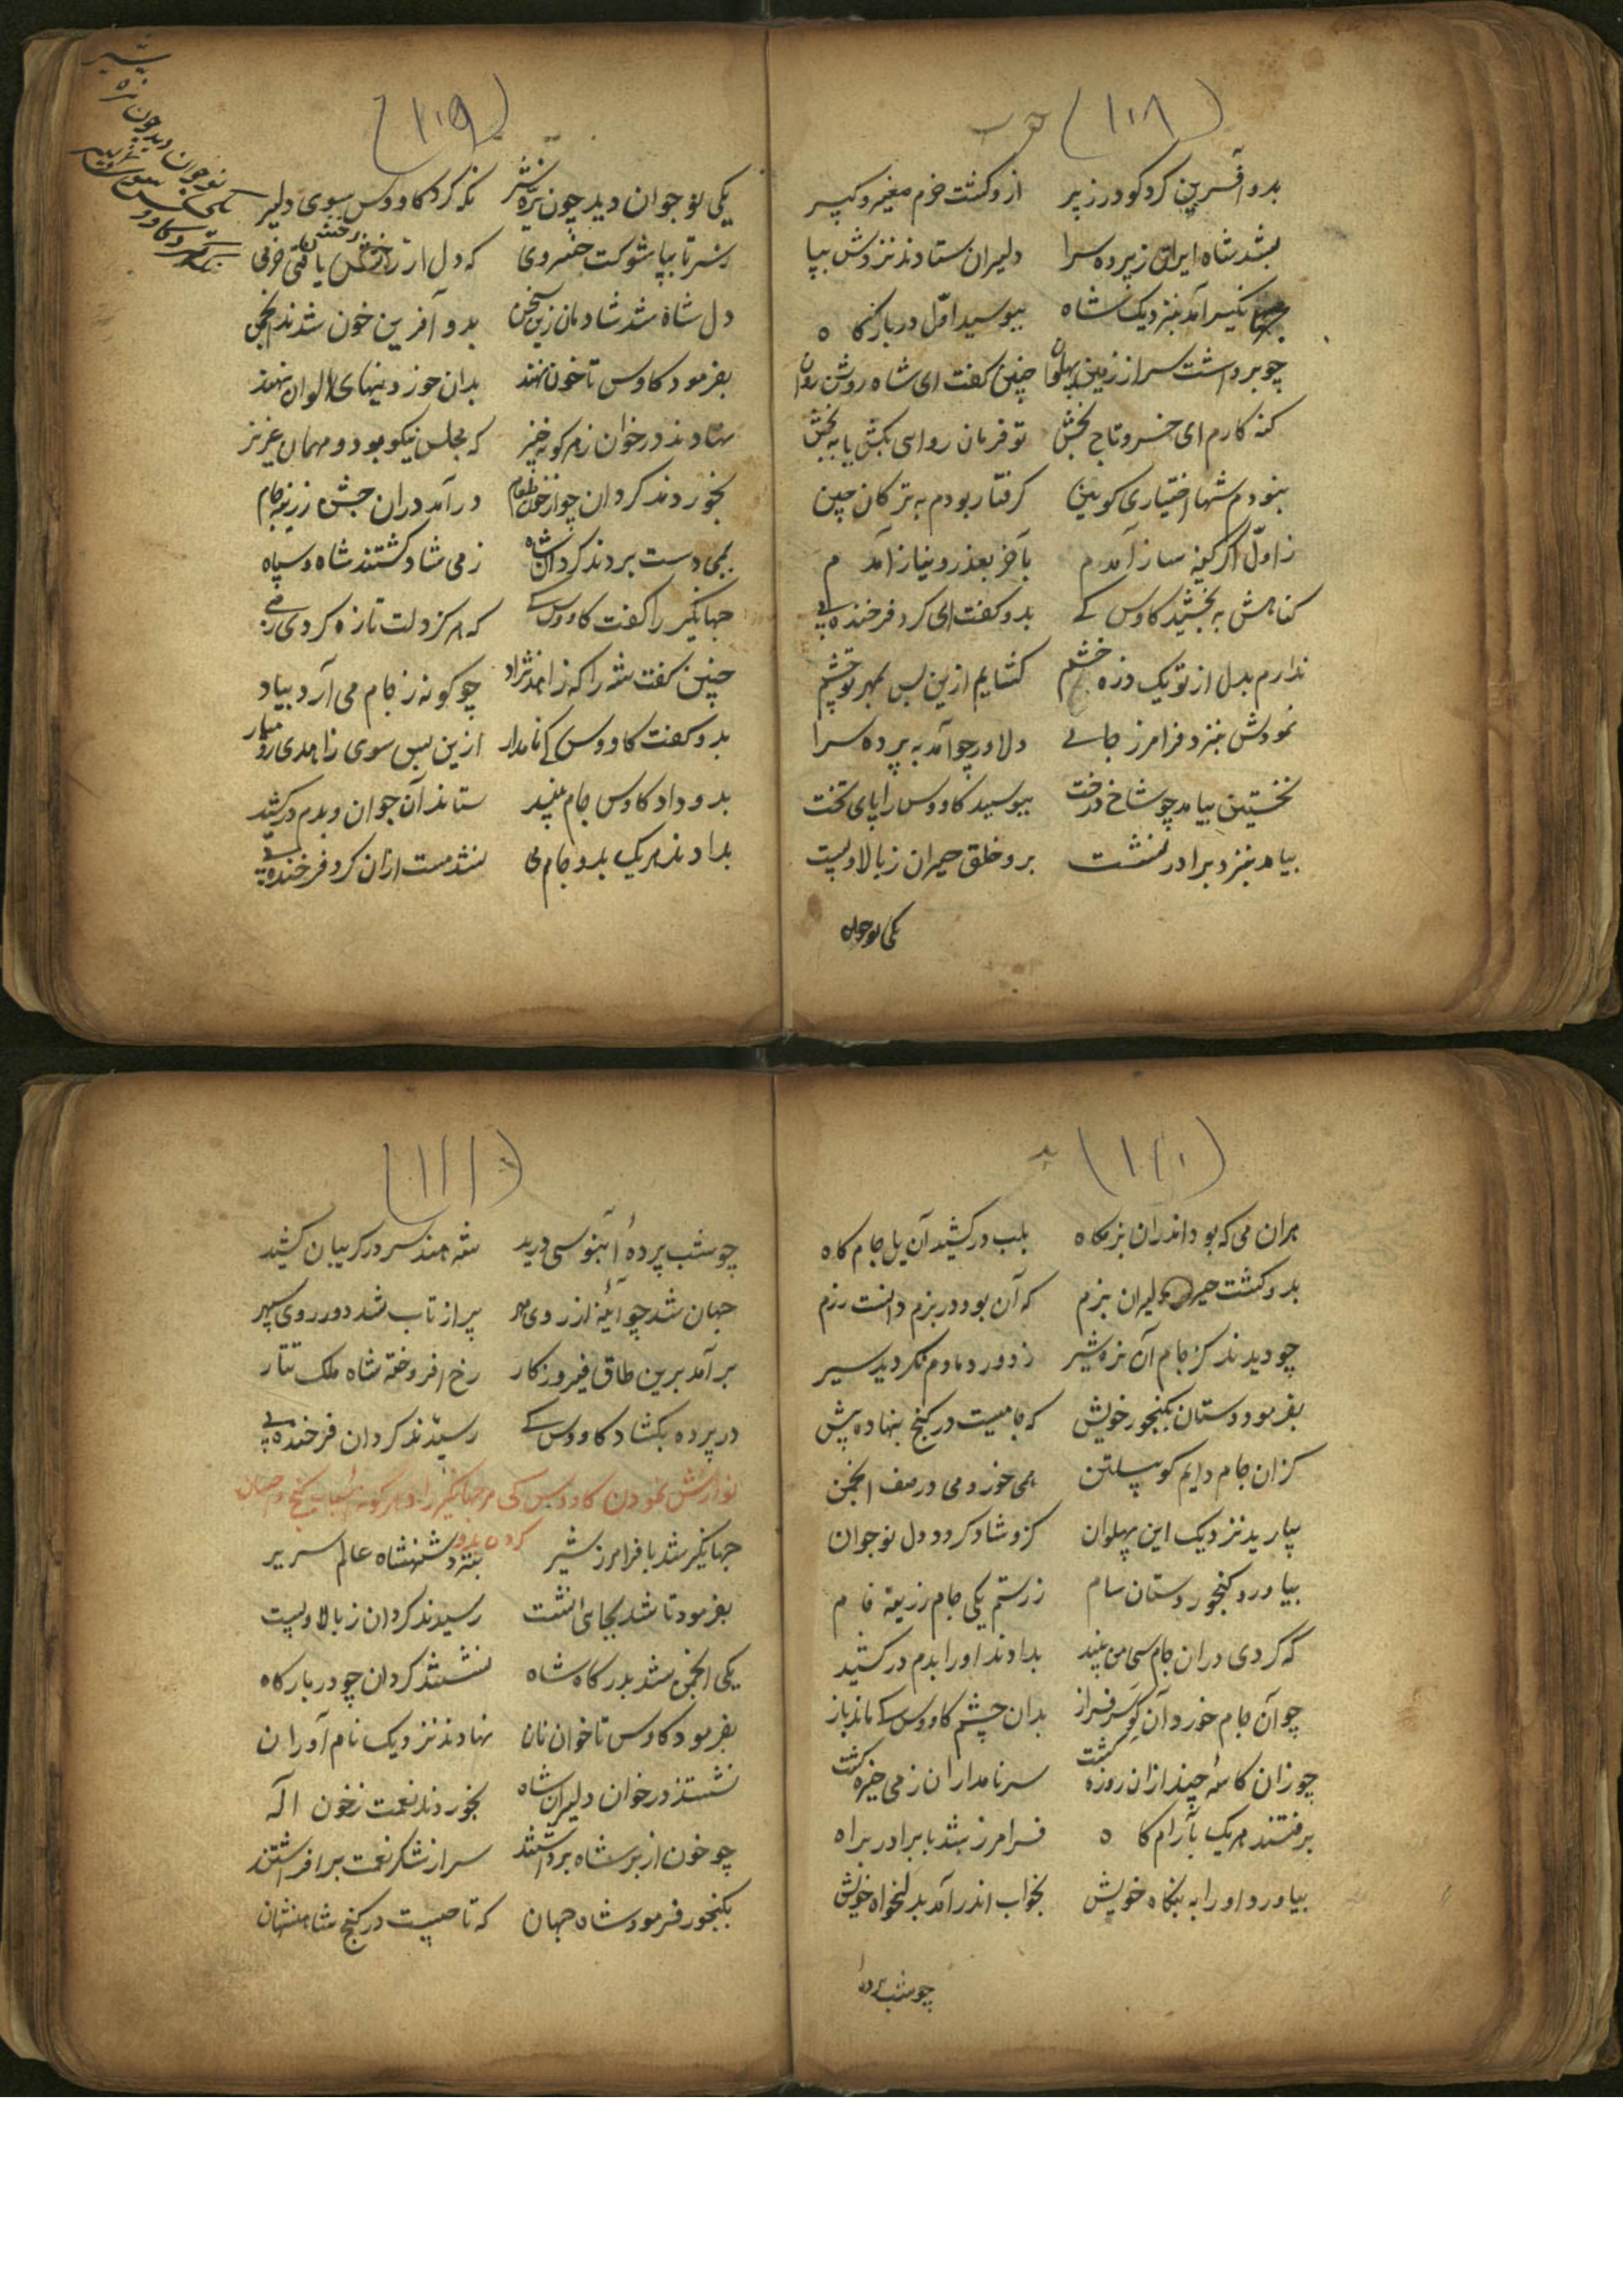 (۱۰۸)
بدو آفرین کرد گودرز پیر ازو گشت خرم مغیر و کبیر
بشد شاه ایران ز پرده سرا دلیران ستادند نزدش بپا
جهانگیر آمد بنزدیک شاه ببوسید اوّل در بارگاه
چو برداشت سر از زمین پهلوان چنین گفت ای شاه روشن روان
گنه کارم ای خسرو تاج بخش تو فرمان روایی بکش یا ببخش
نبودم شها اختیاری گزین گرفتار بودم به ترکان چین
ز اوّل اگر کینه ساز آمدم بآخر بعذر و نیاز آمدم
گناهش به بخشید کاوس کی بدو گفت ای گرد فرخنده پی
ندارم بدل از تو یک ذره خشم گشایم ازین پس بمهر تو چشم
نمودش بنزد فرامرز جای دلاور چو آمد به پرده سرا
نخستین بیامد چو شاخ درخت ببوسید کاووس را پای تخت
بیامد بنزد برادر نشست برو خلق حیران ز بالا و پست
یکی نوجوان
(۱۰۹)
یکی نوجوان دید چون نرّه شیر نگه کرد کاووس سوی دلیر
ز سر تا بپا شوکت خسروی که دل از رخش یافتی خرمی
دل شاه شد شادمان زین سخن بدو آفرین خوان شدند انجمن
بفرمود کاوس تا خون نهند بدان خوردنیهای الوان نهند
نهادند در خوان ز هر گونه چیز که مجلس نیکو بود و مهمان عزیز
بخوردند گردان چو از خون طعام درآمد دران جشن زرینه جام
بمی دست بردند گردان شاه ز می شاد گشتند شاه و سپاه
جهانگیر را گفت کاووس کی که هرگز دلت تازه کردی ز می
چنین گفت شه را که زاهد نژاد چو گونه ز جام می آرد بیاد
بدو گفت کاووس کی نامدار ازین پس سوی زاهدی رو میار
بدو داد کاوس جام نبید ستاند آن جوان و بدم درکشید
بدادند هر یک بدو جام می نشد مست ازان گرد فرخنده پی
(۱۱۰)
هران می که بود اندران بزمگاه بلب درکشید آن یل جام کاه
بدو گشت حیران دلیران بزم که آن بود در بزم دانست رزم
چو دیدند کز جام آن نره شیر ز دور دمادم نگردید سیر
بفرمود دستان بگنجور خویش که جامیست در گنج بنهاده پیش
کزان جام دایم گو پیلتن همی خورد می در صف انجمن
بیارید نزدیک این پهلوان کزو شاد گردد دل نوجوان
بیاورد گنجور دستان سام ز رستم یکی جام زرینه فام
که کردی دران جام سی من نبید بدادند او را بدم درکشید
چو آن جام خورد آن گو سرفراز بدان چشم کاووس کی ماند باز
چو زان کاسه چند ازان روزه گشت سر نامداران ز می خیره گشت
برفتند هر یک بآرام گاه فرامرز بشد با برادر براه
بیاورد او را به بنگاه خویش بخواب اندر آمد بدلخواه خویش
چو شب پردهٔ
(۱۱۱)
چو شب پردهٔ آبنوسی درید شه هند سر در گریبان کشید
جهان شد چو آئینه از روی مهر پر از تاب شد دور روی سپهر
برآمد برین طاق فیروزکار رخ افروخته شاه ملک تتار
در پرده بگشاد کاووس کی رسیدند گردان فرخنده پی
نوازش نمودن کاووس کی مر جهانگیر را و هر گونه
کردن بدو
جهانگیر شد با فرامرز شیر بنزد شهنشاه عالم سریر
بفرمود تا شد بجای نشست رسیدند گردان ز بالا و پست
یکی انجمن شد بدرگاه شاه نشستند گردان چو در بارگاه
بفرمود کاوس تا خوان نان نهادند نزدیک نام آوران
نشستند در خوان دلیران شاه بخوردند نعمت ز خون اله
چو خون از بر شاه برداشتند سر از شکر نعمت برافراشتند
بگنجور فرمود شاه جهان که تا چیست در گنج شاهنشهان